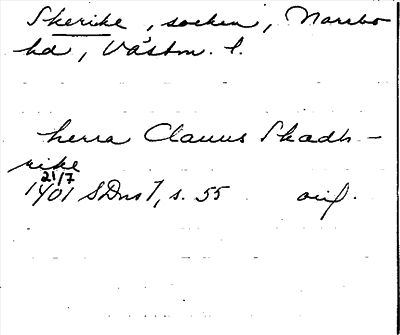 Skerike, socken, Norrbo
hd, Västm. l.
herra Clauus Skadh-
rike
21/7
1401 SDns 1, s. 55 orig.